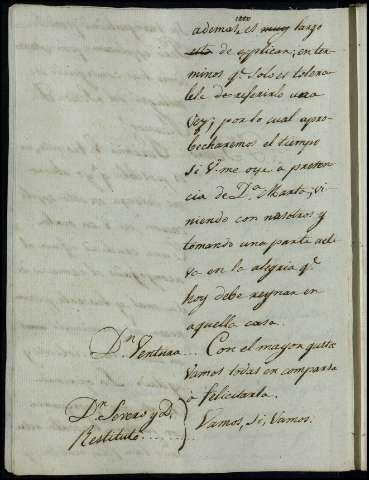 ademas, es muy largo
esto de esplicar; en ter-
minos qe. solo es tolera-
ble de referirlo una
vez; por lo cual apro-
becharemos el tiempo
si V. me oye a presen-
cia de Da. Marta, vi-
niendo con nosotros y
tomando una parte acti-
va en la alegria qe.
hoy debe reynar en
aquella casa.
Dn. Ventura... Con el mayor gusto
vamos todos en comparsa
a felicitarla.
Dn. Severo y D.
Restituto...... } Vamos, si, Vamos.